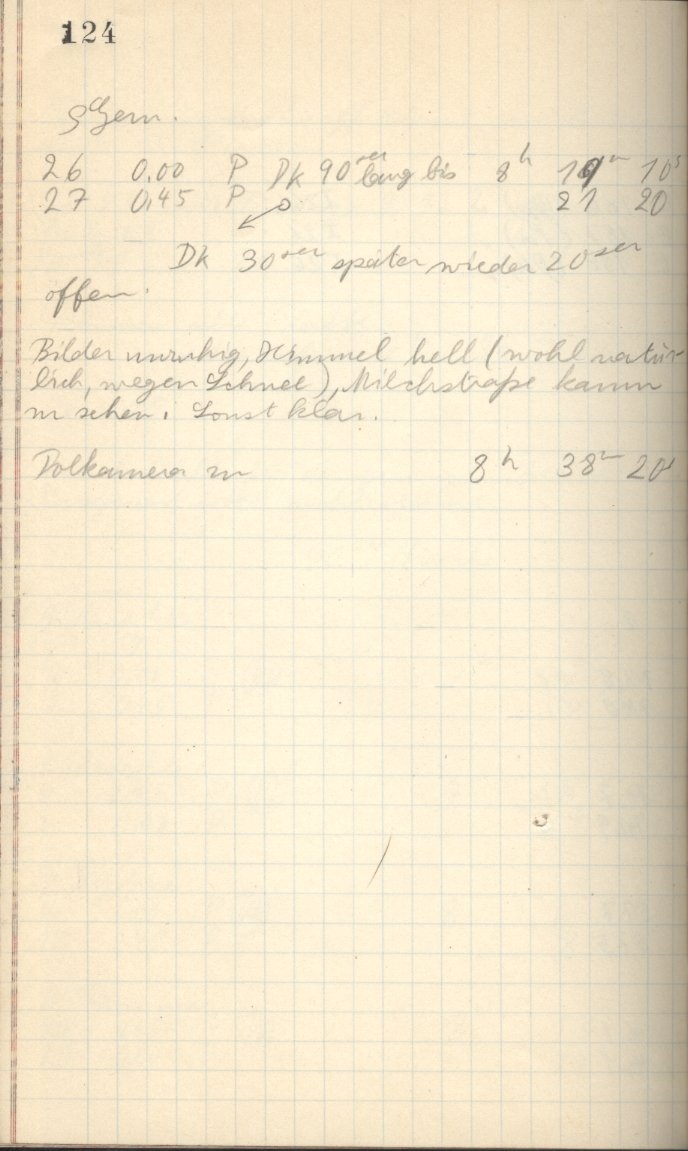 124
Gem.
26 0.00 P Dk 90 sec lang bis 8h 19m 10s
27 0,45 P 21 20
Dk 30 sec später wieder 20 sec
offen.
Bilder unruhig, Himmel hell (wohl natür-
lich, wegen Schnee), Milchstraße kaum
zu sehen. Sonst klar.
Polkamera zu 8h 38m 20s